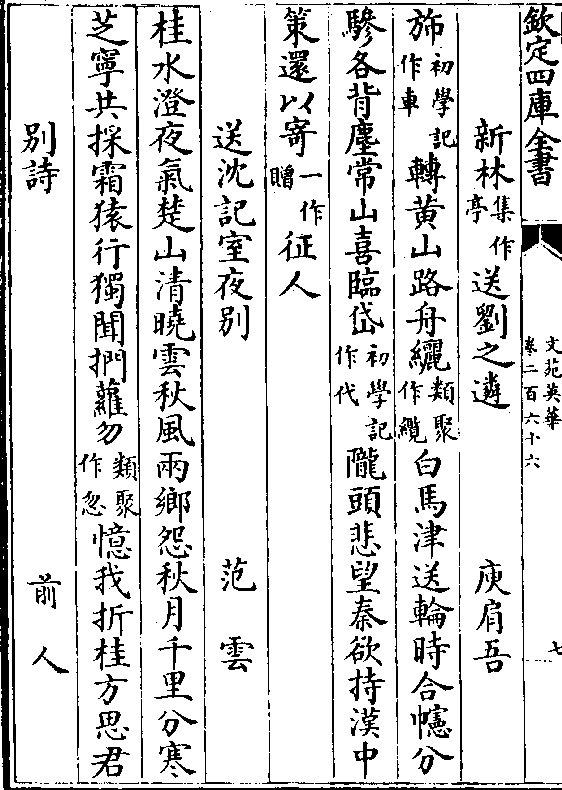 欽定四庫全書
文苑英華
卷二百六十六
七
新林集作亭送劉之遴 庾肩吾
斾初學記作車轉黃山路舟纚類聚作纜白馬津送輪時合幰分
驂各背塵常山喜臨岱初學記作代隴頭悲望秦欲持漢中
策還以寄一作贈征人
送沈記室夜別 范雲
桂水澄夜氣楚山清曉雲秋風兩鄉怨秋月千里分寒
芝寧共採霜猿行獨聞捫蘿勿類聚作忽憶我折桂方思君
別詩 前人